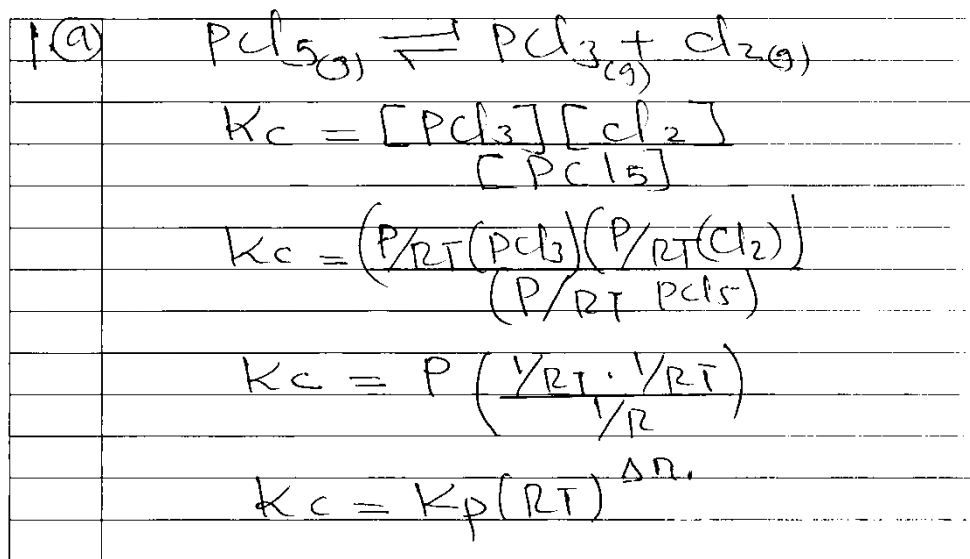 1.(a) PCl5(g) ⇌ PCl3(g) + Cl2(g)
Kc = [PCl3][Cl2]
[PCl5]
Kc = (P/RT(PCl3)(P/RT(Cl2))
(P/RT PCl5)
Kc = P (1/RT · 1/RT)
1/R
Kc = Kp(RT)^Δn.